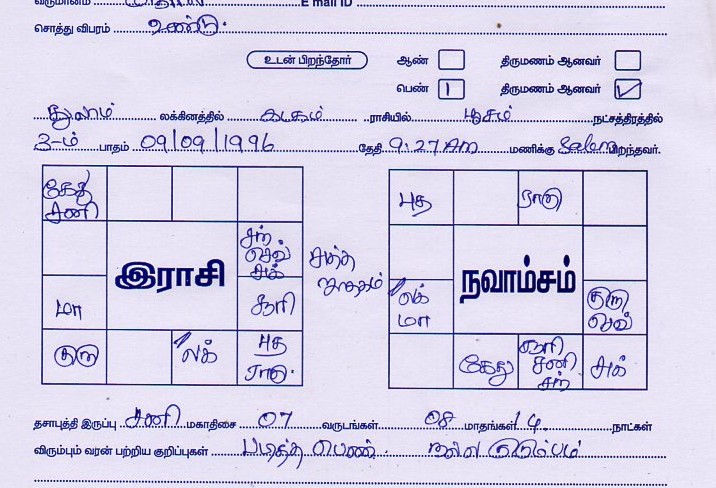 வருமானம் E mail ID
சொத்து விபரம் உண்டு.
உடன் பிறந்தோர் ஆண் திருமணம் ஆனவர்
பெண் 1 திருமணம் ஆனவர் ✓
துலாம் லக்கினத்தில் கடகம் ராசியில் பூசம் நட்சத்திரத்தில்
3-ம் பாதம் 09/09/1996 தேதி 9:27 AM மணிக்கு Salem பிறந்தவர்.
கேது சனி
சந் செவ் சுக்
இராசி
மா
சூரி
குரு
லக்
புத ராகு
சுத்த ஜாதகம்
புத
ராகு
நவாம்சம்
லக் மா
குரு செவ்
கேது
சூரி சனி சந்
சுக்
தசாபுத்தி இருப்பு சனி மகாதிசை 07 வருடங்கள் 08 மாதங்கள் 14 நாட்கள்
விரும்பும் வரன் பற்றிய குறிப்புகள் படித்த பெண். நல்ல குடும்பம்